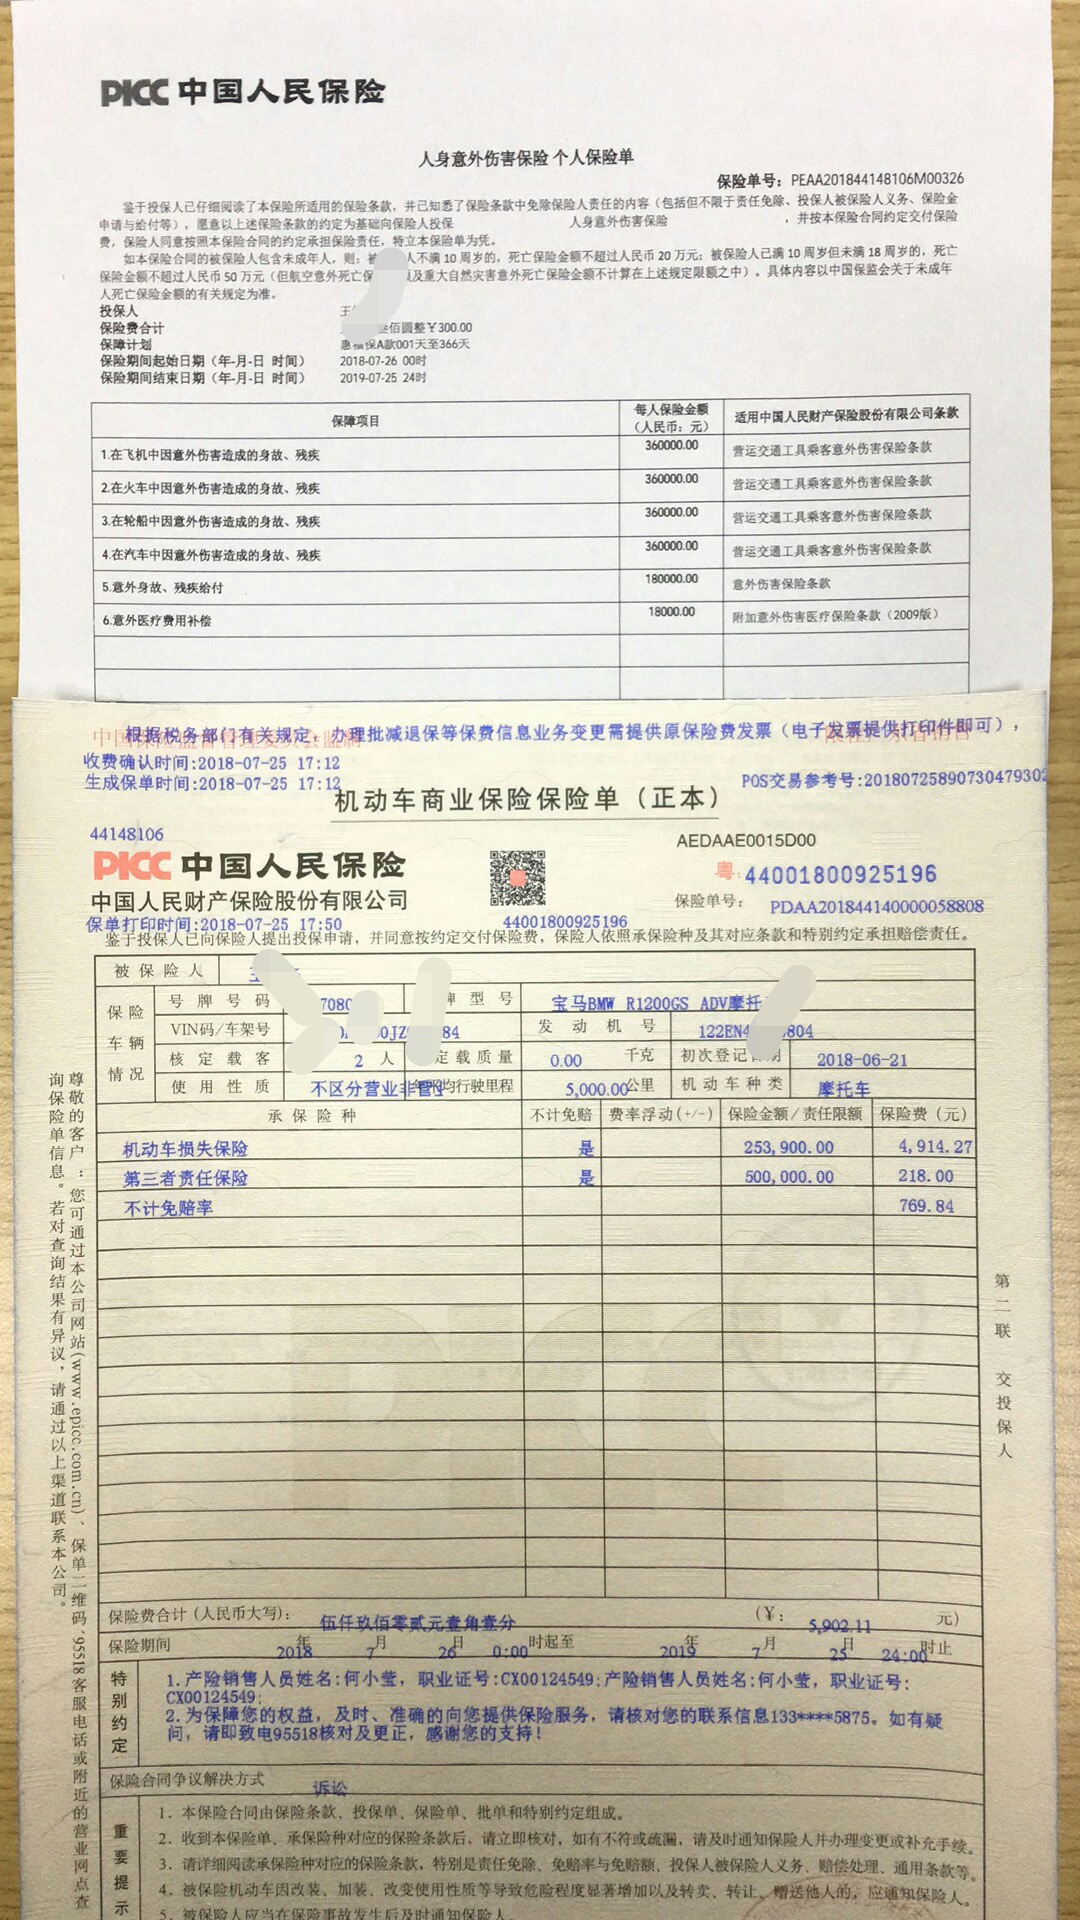 PICC 中国人民保险
人身意外伤害保险 个人保险单
保险单号：PEAA201844148106M00326
鉴于投保人已仔细阅读了本保险所适用的保险条款，并已知悉了保险条款中免除保险人责任的内容（包括但不限于责任免除、投保人被保险人义务、保险金
申请与给付等），愿意以上述保险条款的约定为基础向保险人投保 人身意外伤害保险 ，并按本保险合同约定交付保险
费，保险人同意按照本保险合同的约定承担保险责任，特立本保险单为凭。
如本保险合同的被保险人包含未成年人，则：被 人不满 10 周岁的，死亡保险金额不超过人民币 20 万元；被保险人已满 10 周岁但未满 18 周岁的，死亡
保险金额不超过人民币 50 万元（但航空意外死亡保 及重大自然灾害意外死亡保险金额不计算在上述规定限额之中）。具体内容以中国保监会关于未成年
人死亡保险金额的有关规定为准。
投保人 王
保险费合计 叁佰圆整￥300.00
保障计划 惠福保A款001天至366天
保险期间起始日期（年-月-日 时间） 2018-07-26 00时
保险期间结束日期（年-月-日 时间） 2019-07-25 24时
保障项目 每人保险金额（人民币：元） 适用中国人民财产保险股份有限公司条款
1.在飞机中因意外伤害造成的身故、残疾 360000.00 营运交通工具乘客意外伤害保险条款
2.在火车中因意外伤害造成的身故、残疾 360000.00 营运交通工具乘客意外伤害保险条款
3.在轮船中因意外伤害造成的身故、残疾 360000.00 营运交通工具乘客意外伤害保险条款
4.在汽车中因意外伤害造成的身故、残疾 360000.00 营运交通工具乘客意外伤害保险条款
5.意外身故、残疾给付 180000.00 意外伤害保险条款
6.意外医疗费用补偿 18000.00 附加意外伤害医疗保险条款（2009版）
中国保险监督管理委员会监制
根据税务部门有关规定，办理批减退保等保费信息业务变更需提供原保险费发票（电子发票提供打印件即可），
收费确认时间:2018-07-25 17:12
生成保单时间:2018-07-25 17:12
POS交易参考号:20180725890730479302
机动车商业保险保险单（正本）
44148106
AEDAAE0015D00
PICC 中国人民保险
粤: 44001800925196
中国人民财产保险股份有限公司
保险单号: PDAA201844140000058808
保单打印时间:2018-07-25 17:50
44001800925196
鉴于投保人已向保险人提出投保申请，并同意按约定交付保险费，保险人依照承保险种及其对应条款和特别约定承担赔偿责任。
被保险人
保险车辆情况
号牌号码 7080 牌型号 宝马BMW R1200GS ADV摩托
VIN码/车架号 0JZ 84 发动机号 122EN4 804
核定载客 2 人 定载质量 0.00 千克 初次登记日期 2018-06-21
使用性质 不区分营业非营业 年平均行驶里程 5,000.00 公里 机动车种类 摩托车
承保险种 不计免赔 费率浮动(+/-) 保险金额/责任限额 保险费（元）
机动车损失保险 是 253,900.00 4,914.27
第三者责任保险 是 500,000.00 218.00
不计免赔率 769.84
保险费合计（人民币大写）： 伍仟玖佰零贰元壹角壹分 （￥： 5,902.11 元）
保险期间 2018 年 7 月 26 日 0:00 时起至 2019 年 7 月 25 日 24:00 时止
特别约定
1.产险销售人员姓名:何小莹，职业证号:CX00124549;产险销售人员姓名:何小莹，职业证号:
CX00124549;
2.为保障您的权益，及时、准确的向您提供保险服务，请核对您的联系信息133****5875。如有疑
问，请即致电95518核对及更正，感谢您的支持！
保险合同争议解决方式 诉讼
重要提示
1. 本保险合同由保险条款、投保单、保险单、批单和特别约定组成。
2. 收到本保险单、承保险种对应的保险条款后，请立即核对，如有不符或疏漏，请及时通知保险人并办理变更或补充手续。
3. 请详细阅读承保险种对应的保险条款，特别是责任免除、免赔率与免赔额、投保人被保险人义务、赔偿处理、通用条款等。
4. 被保险机动车因改装、加装、改变使用性质等导致危险程度显著增加以及转卖、转让、赠送他人的，应通知保险人。
5. 被保险人应当在保险事故发生后及时通知保险人。
尊敬的客户：您可通过本公司网站(www.epicc.com.cn)、保单二维码、95518客服电话或附近的营业网点查
询保险单信息。若对查询结果有异议，请通过以上渠道联系本公司。
第二联 交投保人